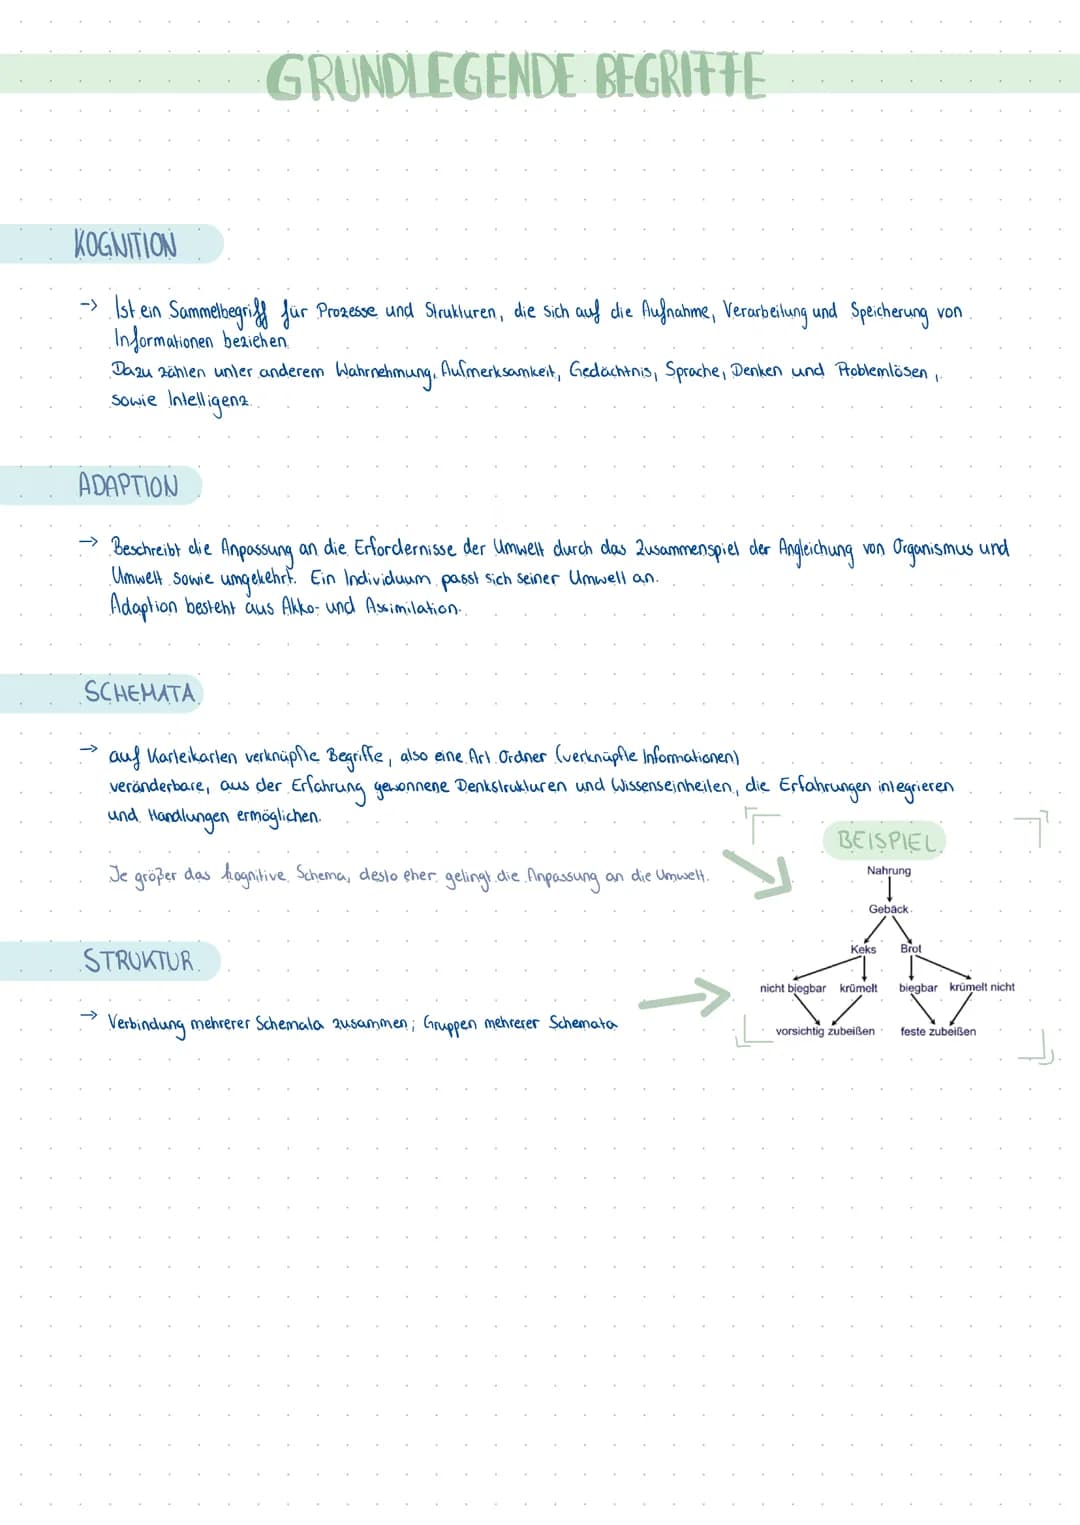 GRUNDLEGENDE BEGRIFFE
KOGNITION
-> Ist ein Sammelbegriff für Prozesse und Strukturen, die sich auf die Aufnahme, Verarbeitung und Speicherung von
Informationen beziehen.
Dazu zählen unter anderem Wahrnehmung, Aufmerksamkeit, Gedächtnis, Sprache, Denken und Problemlösen,
sowie Intelligenz.
ADAPTION
→ Beschreibt die Anpassung an die Erfordernisse der Umwelt durch das Zusammenspiel der Angleichung von Organismus und
Umwelt sowie umgekehrt. Ein Individuum passt sich seiner Umwelt an.
Adaption besteht aus Akko- und Assimilation.
SCHEMATA
→ auf Karteikarten verknüpfte Begriffe, also eine Art Ordner (verknüpfte Informationen)
veränderbare, aus der Erfahrung gewonnene Denkstrukturen und Wissenseinheiten, die Erfahrungen integrieren
und Handlungen ermöglichen.
Je größer das kognitive Schema, desto eher gelingt die Anpassung an die Umwelt.
STRUKTUR
→ Verbindung mehrerer Schemata zusammen; Gruppen mehrerer Schemata
BEISPIEL
Nahrung
Gebäck
Keks Brot
nicht biegbar krümelt biegbar krümelt nicht
vorsichtig zubeißen feste zubeißen